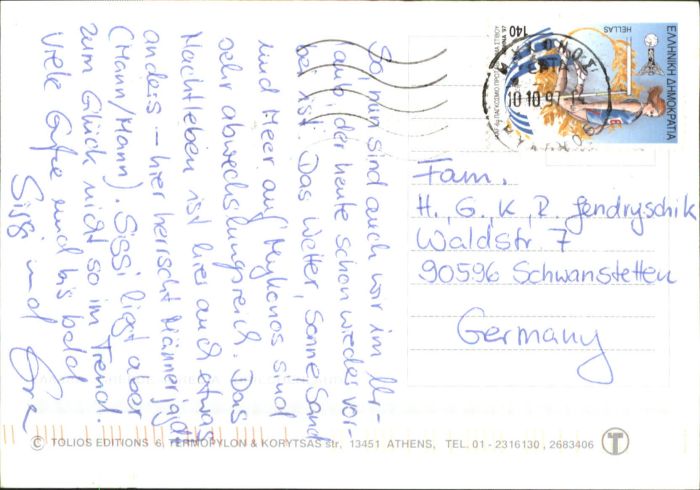 So! nun sind auch wir im Ur-
laub, der heute schon wieder vor-
bei ist. Das Wetter, Sonne, Sand
und Meer auf Mykonos sind
sehr abwechslungsreich. Das
Nachtleben ist hier auch etwas
anders – hier herrscht Männerjagd
(Mann/Mann). Sissi liegt aber
zum Glück nicht so im Trend.
Viele Grüße und bis bald
Sissi und
ΕΛΛΗΝΙΚΗ ΔΗΜΟΚΡΑΤΙΑ
HELLAS
140
10 10 97
Fam.
H., G., K., R. Jendryschik
Waldstr. 7
90596 Schwanstetten
Germany
© TOLIOS EDITIONS 6, TERMOPYLON & KORYTSAS str, 13451 ATHENS, TEL. 01 - 2316130 , 2683406 T